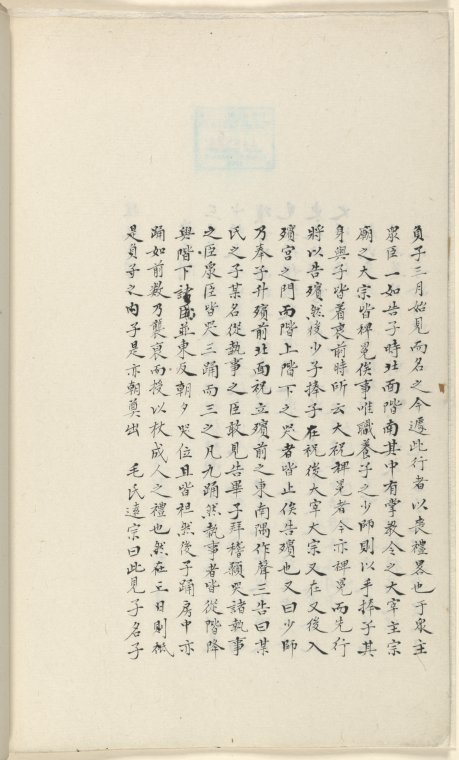 負子三月始見而名之今遽此行者以喪禮畧也于衆主
衆臣一如告子時北面階南其中有掌教令之大宰主宗
廟之大宗皆裨冕俟事唯職養子之少師則以手捧子其
身與子皆着衰前時所云大祝裨冕者今亦裨冕而先行
將以告殯然後少子捧子在祝後大宰大宗又在又後入
殯宮之門而階上階下之哭者皆止俟告殯也又曰少師
乃奉子升殯前北面祝立殯前之東南隅作聲三告曰某
氏之子某名從執事之臣敢見告畢子拜稽顙哭諸執事
之臣衆臣皆哭三踊而三之凡九踊然執事者皆從階降
與階下諸臣並東反朝夕哭位且皆袒然後子踊房中亦
踊如前數乃襲衰而授以杖成人之禮也然在三日則祇
是負子之內子是亦朝奠出　毛氏遠宗曰此見子名子